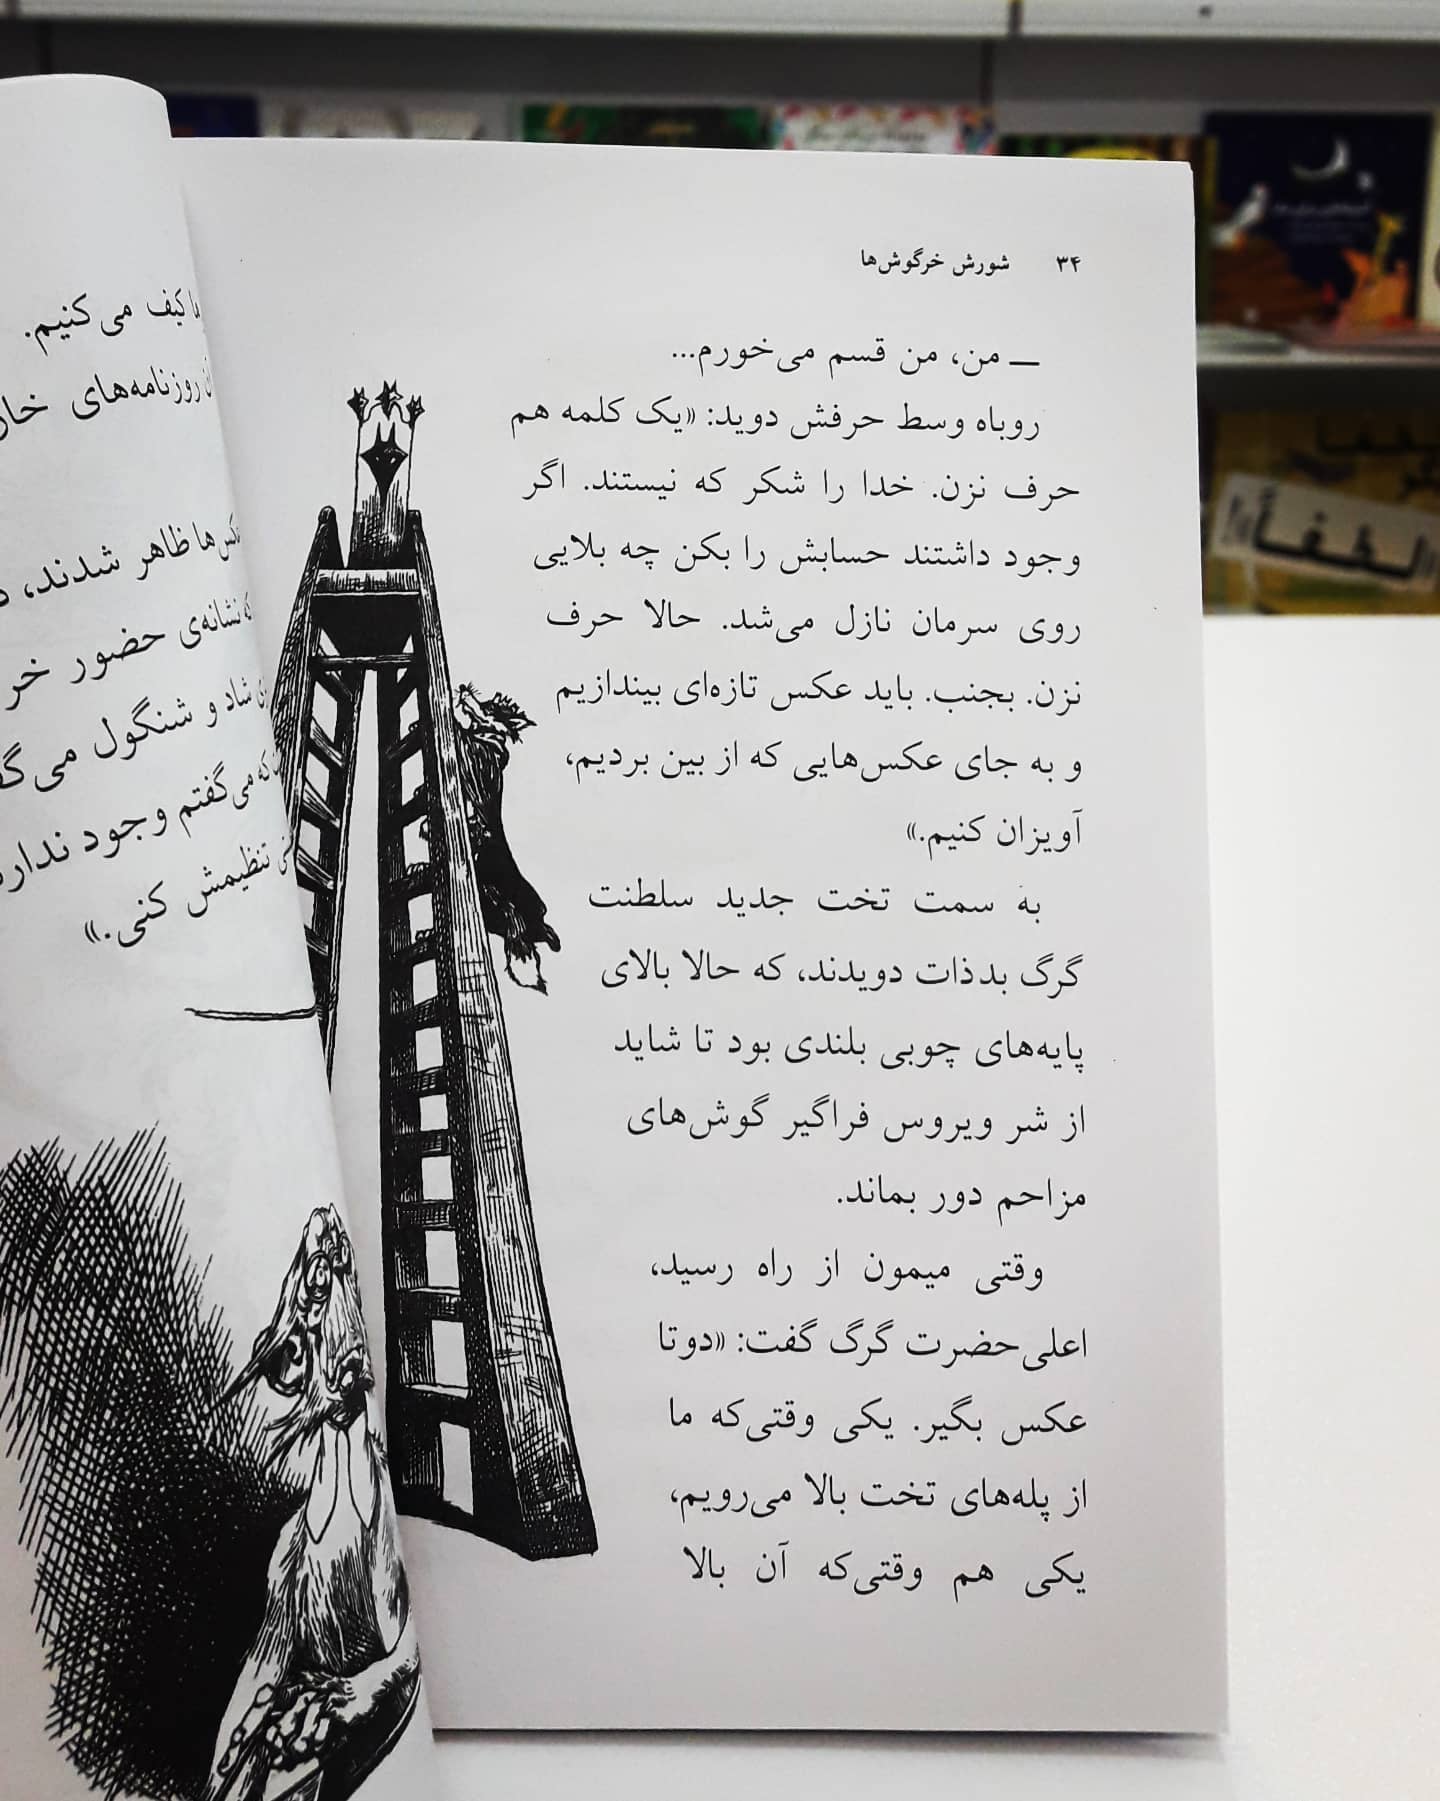 ۳۴ شورش خرگوش‌ها
ــ من، من قسم می‌خورم...
روباه وسط حرفش دوید: «یک کلمه هم
حرف نزن. خدا را شکر که نیستند. اگر
وجود داشتند حسابش را بکن چه بلایی
روی سرمان نازل می‌شد. حالا حرف
نزن. بجنب. باید عکس تازه‌ای بیندازیم
و به جای عکس‌هایی که از بین بردیم،
آویزان کنیم.»
به سمت تخت جدید سلطنت
گرگ بدذات دویدند، که حالا بالای
پایه‌های چوبی بلندی بود تا شاید
از شر ویروس فراگیر گوش‌های
مزاحم دور بماند.
وقتی میمون از راه رسید،
اعلی‌حضرت گرگ گفت: «دوتا
عکس بگیر. یکی وقتی‌که ما
از پله‌های تخت بالا می‌رویم،
یکی هم وقتی‌که آن بالا
کیف می‌کنیم.
روزنامه‌های
ظاهر شدند،
نشانه‌ی حضور
شاد و شنگول
که می‌گفتم وجود
تنظیمش کنی.»